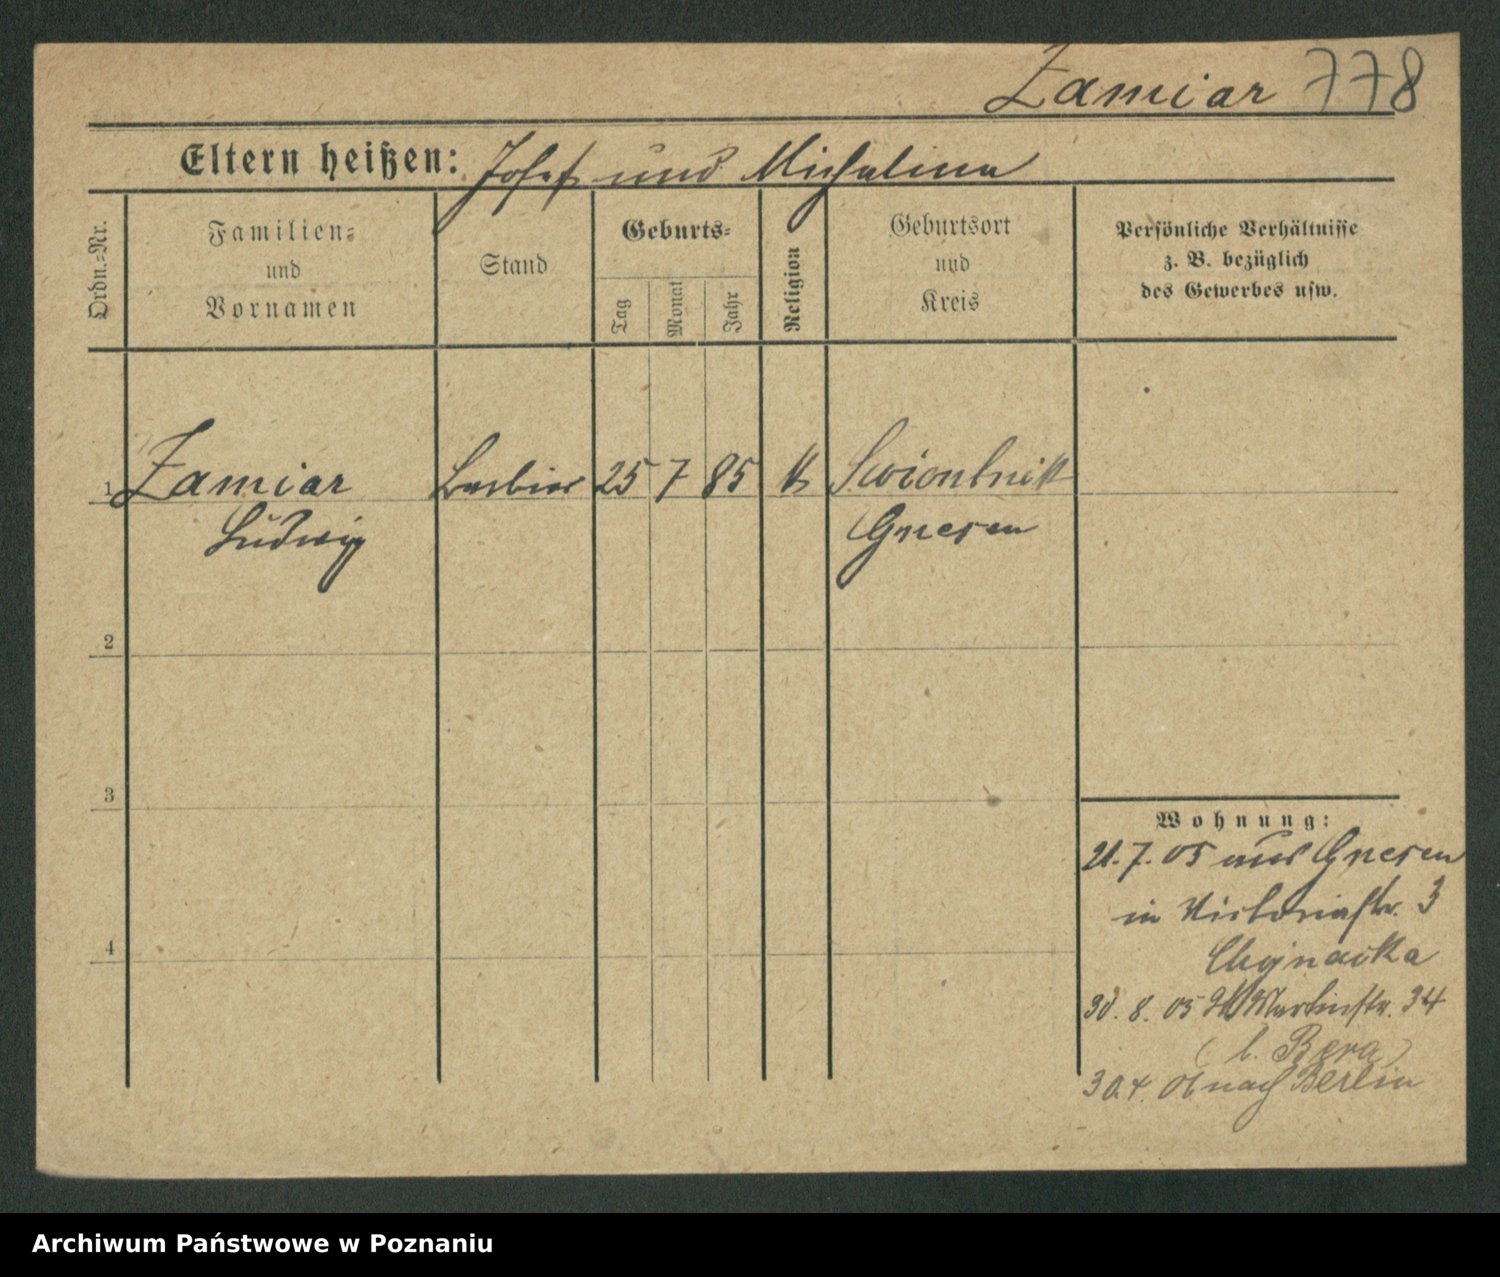 Zamiar 778
Eltern heißen: Josef und Michalina
Ordn.-Nr.
Familien-
und
Vornamen
Stand
Geburts-
Tag
Monat
Jahr
Religion
Geburtsort
und
Kreis
Persönliche Verhältnisse
z. B. bezüglich
des Gewerbes usw.
1 Zamiar Barbier 25 7 85 k Swiontnik
Ludwig Gnesen
2
3
4
Wohnung:
21.7.05 aus Gnesen
in Victoriastr. 3
Chojnacka
30.8.05 Martinstr. 34
(b. Bera)
30.4.06 nach Berlin
Archiwum Państwowe w Poznaniu